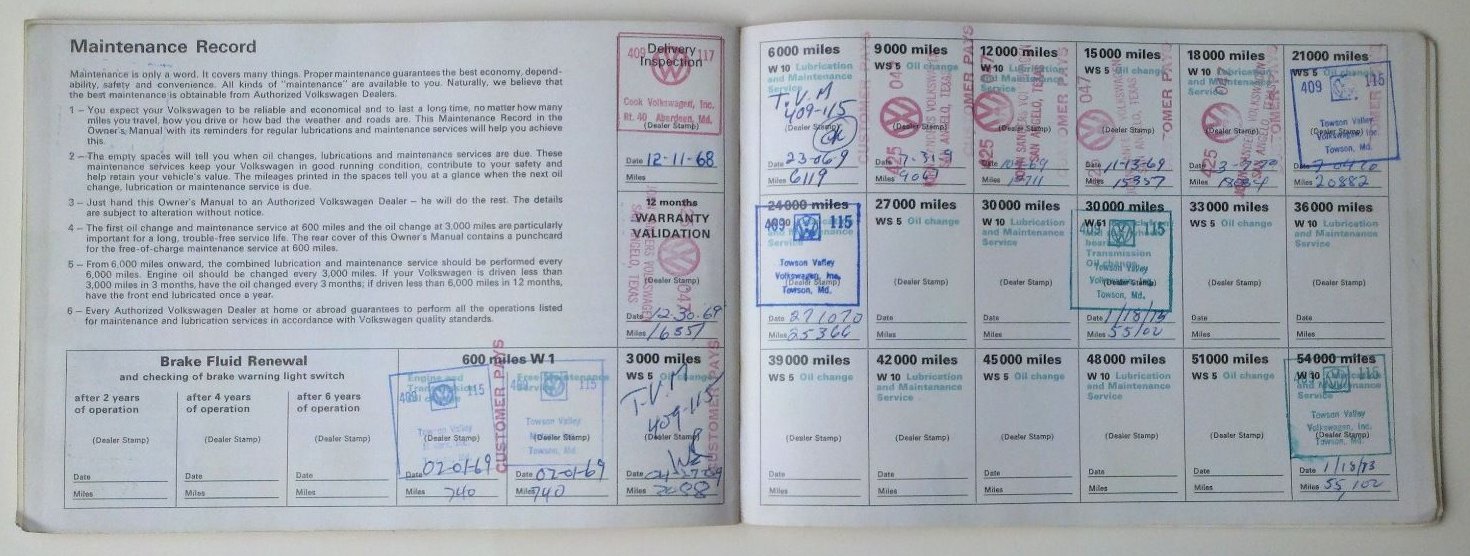 Maintenance Record
Maintenance is only a word. It covers many things. Proper maintenance guarantees the best economy, depend-
ability, safety and convenience. All kinds of "maintenance" are available to you. Naturally, we believe that
the best maintenance is obtainable from Authorized Volkswagen Dealers.
1 – You expect your Volkswagen to be reliable and economical and to last a long time, no matter how many
miles you travel, how you drive or how bad the weather and roads are. This Maintenance Record in the
Owner's Manual with its reminders for regular lubrications and maintenance services will help you achieve
this.
2 – The empty spaces will tell you when oil changes, lubrications and maintenance services are due. These
maintenance services keep your Volkswagen in good running condition, contribute to your safety and
help retain your vehicle's value. The mileages printed in the spaces tell you at a glance when the next oil
change, lubrication or maintenance service is due.
3 – Just hand this Owner's Manual to an Authorized Volkswagen Dealer – he will do the rest. The details
are subject to alteration without notice.
4 – The first oil change and maintenance service at 600 miles and the oil change at 3,000 miles are particularly
important for a long, trouble-free service life. The rear cover of this Owner's Manual contains a punchcard
for the free-of-charge maintenance service at 600 miles.
5 – From 6,000 miles onward, the combined lubrication and maintenance service should be performed every
6,000 miles. Engine oil should be changed every 3,000 miles. If your Volkswagen is driven less than
3,000 miles in 3 months, have the oil changed every 3 months; if driven less than 6,000 miles in 12 months,
have the front end lubricated once a year.
6 – Every Authorized Volkswagen Dealer at home or abroad guarantees to perform all the operations listed
for maintenance and lubrication services in accordance with Volkswagen quality standards.
Delivery
Inspection
409 117
Cook Volkswagen, Inc.
Rt. 40 Aberdeen, Md.
(Dealer Stamp)
Date 12-11-68
Miles
12 months
WARRANTY
VALIDATION
VOLKSWAGEN
SAN ANGELO, TEXAS
047
(Dealer Stamp)
Date 12-30-69
Miles 16351
Brake Fluid Renewal
and checking of brake warning light switch
after 2 years
of operation
(Dealer Stamp)
Date
Miles
after 4 years
of operation
(Dealer Stamp)
Date
Miles
after 6 years
of operation
(Dealer Stamp)
Date
Miles
600 miles W 1
409 115
Towson Valley
(Dealer Stamp)
Date 02-01-69
Miles 740
CUSTOMER PAYS
Free Maintenance
Service
409 115
Towson Valley
(Dealer Stamp)
Date 02-01-69
Miles 740
3 000 miles
WS 5 Oil change
T.V.M
409-115
(Dealer Stamp)
Date
Miles
CUSTOMER PAYS
6 000 miles
W 10 Lubrication
and Maintenance
Service
T.V.M
409-115
(Dealer Stamp)
OK
Date 23-069
Miles 6119
9 000 miles
WS 5 Oil change
CUSTOMER PAYS
425 047
VOLKSWAGEN
SAN ANGELO, TEXAS
Date
Miles
12 000 miles
W 10 Lubrication
and Maintenance
Service
CUSTOMER PAYS
425 047
SAN ANGELO, TEXAS
Date
Miles
15 000 miles
WS 5 Oil change
425 047
(Dealer Stamp)
Date 11-13-69
Miles 15357
18 000 miles
W 10 Lubrication
and Maintenance
Service
CUSTOMER PAYS
425 047
SAN ANGELO, TEXAS
Date
Miles
21 000 miles
WS 5 Oil change
409 115
Towson Valley
Volkswagen Inc.
Towson, Md.
Date
Miles 20882
24 000 miles
409 115
Towson Valley
Volkswagen, Inc.
(Dealer Stamp)
Towson, Md.
Date 271070
Miles 25366
27 000 miles
WS 5 Oil change
(Dealer Stamp)
Date
Miles
30 000 miles
W 10 Lubrication
and Maintenance
Service
(Dealer Stamp)
Date
Miles
30 000 miles
W 61
Transmission
Oil change
409 115
Towson Valley
Volkswagen, Inc.
(Dealer Stamp)
Towson, Md.
Date 1/18/73
Miles 55102
33 000 miles
WS 5 Oil change
(Dealer Stamp)
Date
Miles
36 000 miles
W 10 Lubrication
and Maintenance
Service
(Dealer Stamp)
Date
Miles
39 000 miles
WS 5 Oil change
(Dealer Stamp)
Date
Miles
42 000 miles
W 10 Lubrication
and Maintenance
Service
(Dealer Stamp)
Date
Miles
45 000 miles
WS 5 Oil change
(Dealer Stamp)
Date
Miles
48 000 miles
W 10 Lubrication
and Maintenance
Service
(Dealer Stamp)
Date
Miles
51 000 miles
WS 5 Oil change
(Dealer Stamp)
Date
Miles
54 000 miles
Service
409 115
Towson Valley
Volkswagen, Inc.
(Dealer Stamp)
Towson, Md.
Date 1/18/73
Miles 55,102